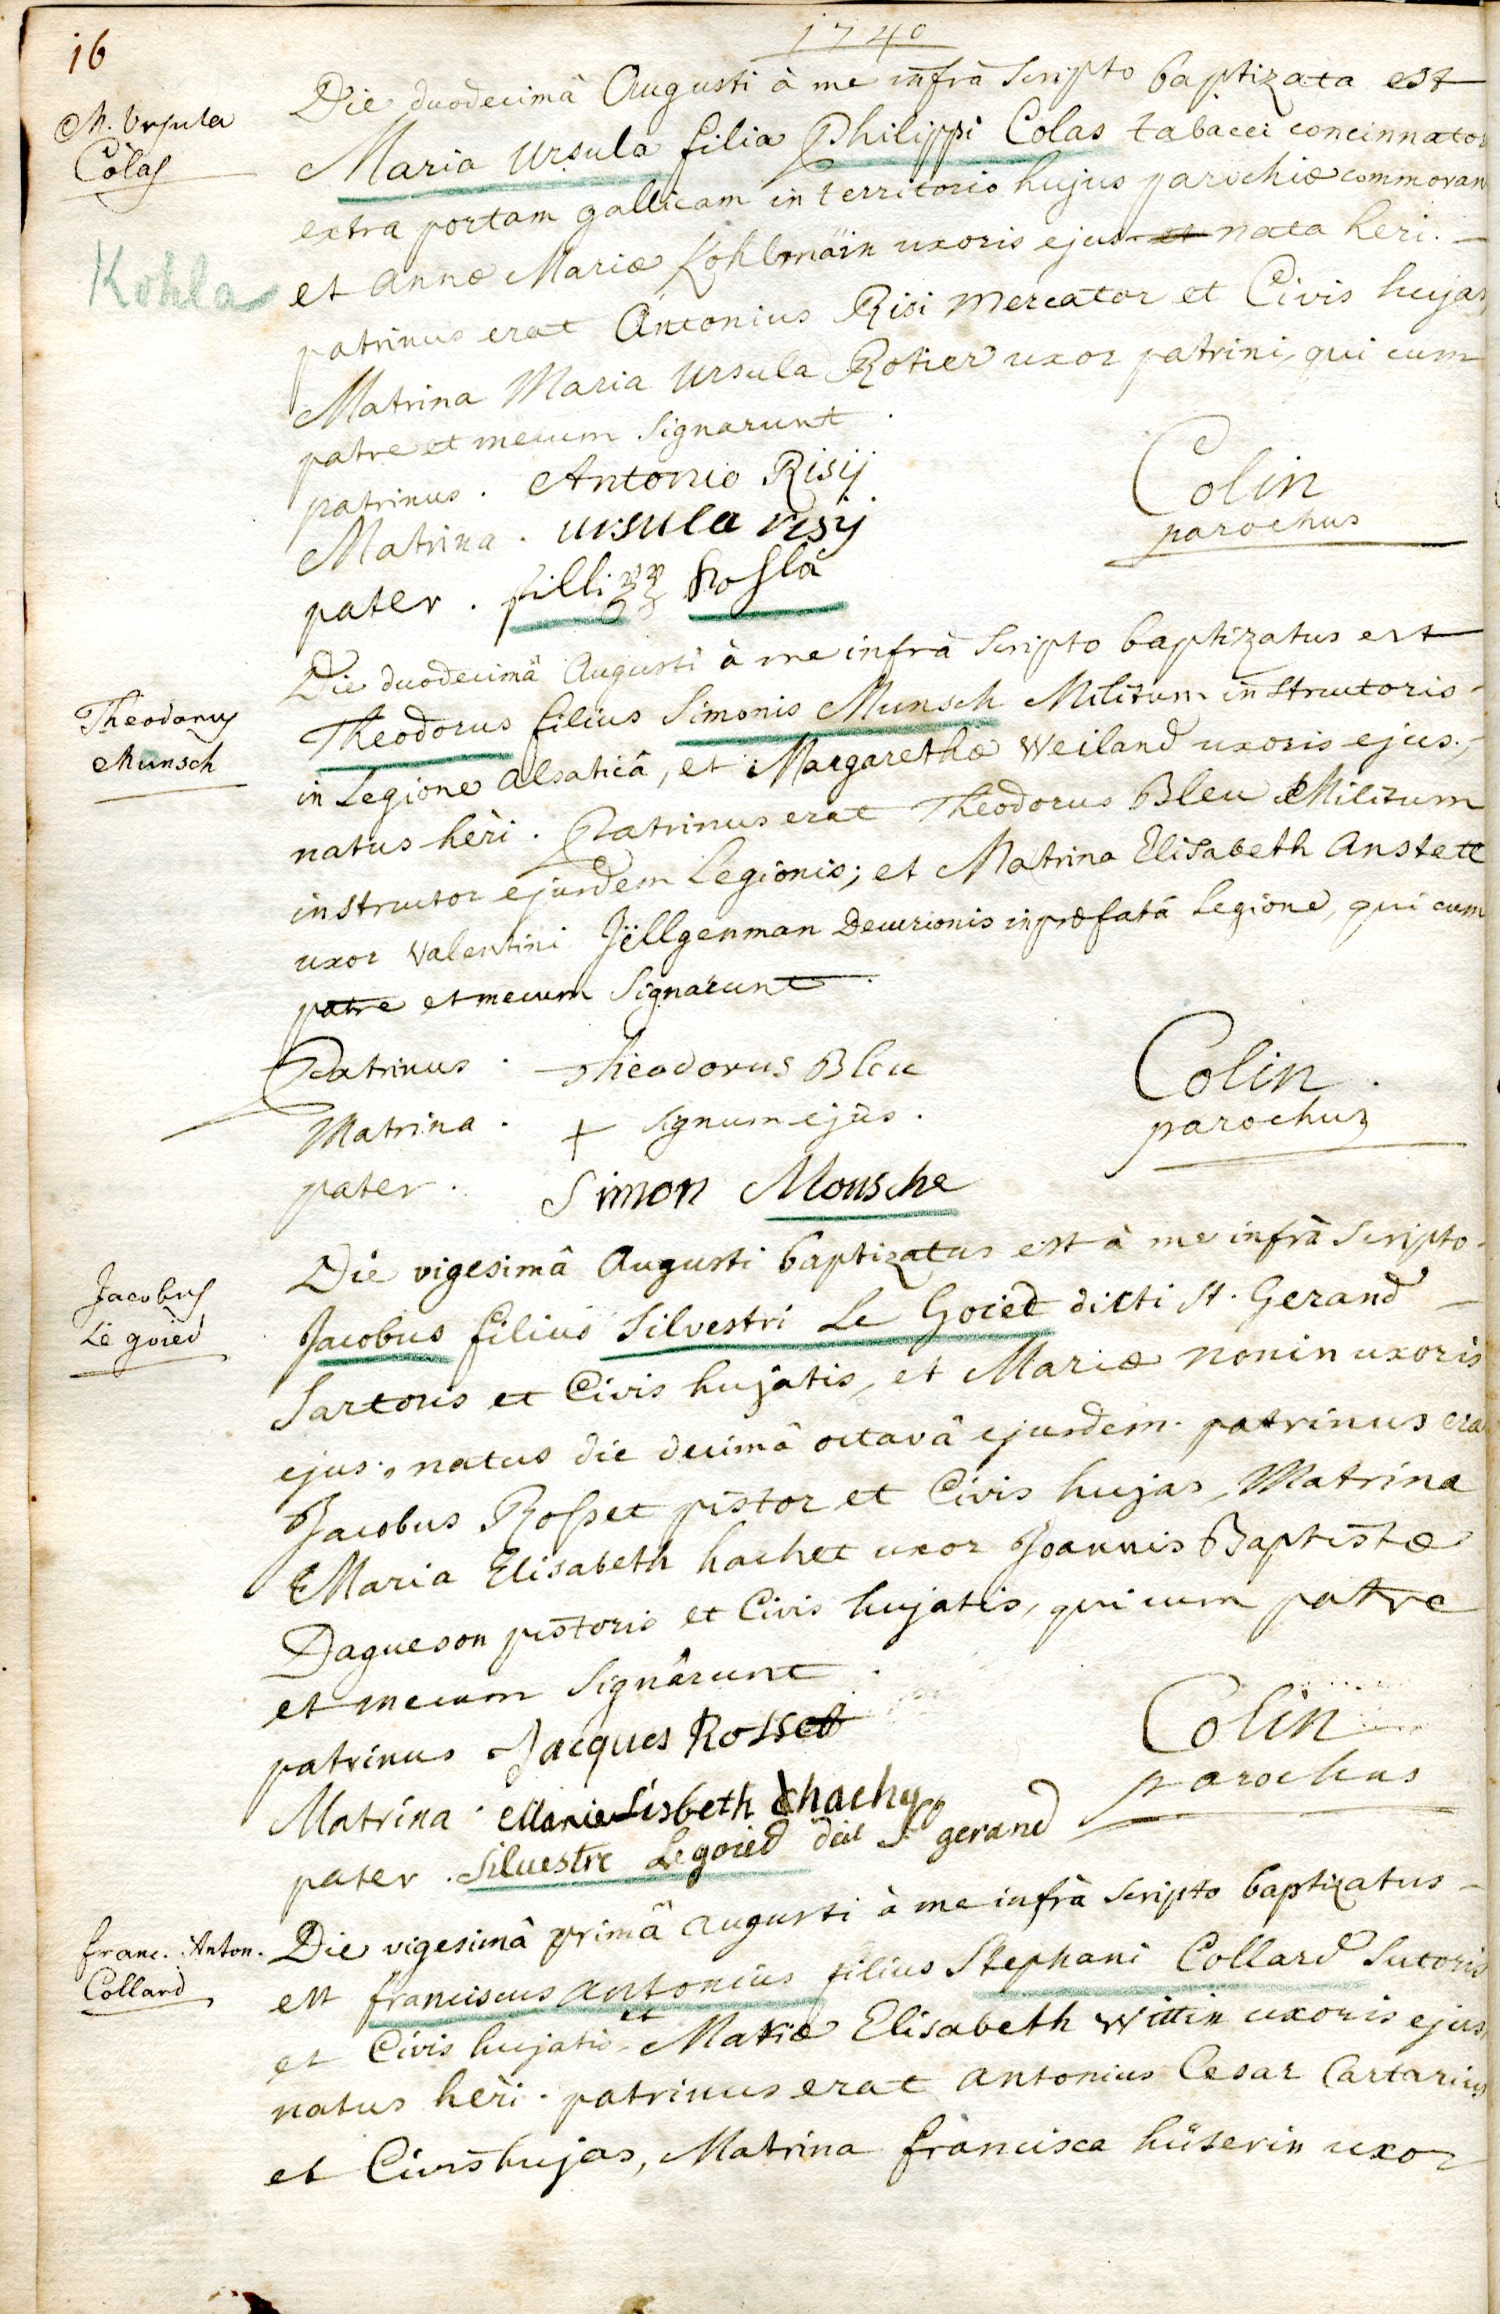 16
1740
M. Ursula
Colas
Kohla
Die duodecimâ Augusti à me infrà scripto baptizata est
Maria Ursula filia Philippi Colas tabacci concinnator
extra portam gallicam in territorio hujus parochiæ commoran
et annæ Mariæ Kohlmäin uxoris ejus et nata heri.
patrinus erat Antonius Risi Mercator et Civis hujas,
Matrina Maria Ursula Rotier uxor patrini, qui cum
patre et mecum signarunt.
patrinus. Antonio Risij
Matrina. ursula risij
pater. filli Kohla
Colin
parochus
Theodorus
Munsch
Die duodecimâ Augusti à me infrà scripto baptizatus est
Theodorus filius Simonis Munsch Militum instructoris
in Legione alsaticâ, et Margarethæ Weiland uxoris ejus.,
natus hèri. Patrinus erat Theodorus Bleu Militum
instructor ejusdem Legionis; et Matrina Elisabeth Anstett
uxor Valentini Jëllgenman Decurionis in præfatâ Legione, qui cum
patre et mecum signarunt.
Patrinus. Theodorus Bleu
Matrina. + signum ejus.
pater. Simon Mousche
Colin.
parochus
Jacobus
Le goied
Die vigesimâ Augusti baptizatus est à me infrà scripto
Jacobus filius Silvestri Le Goied dicti St. Gerand
Sartoris et Civis hujatis, et Mariæ nonin uxoris
ejus., natus die decimâ octavâ ejusdem. patrinus era
Jacobus Rosset pistor et Civis hujas, Matrina
Maria Elisabeth hachet uxor Joannis Baptistæ
Dagueson pistoris et Civis hujatis, qui cum patre
et mecum signârunt.
patrinus Jacques Rosset
Matrina. Marie Lisbeth hachy
pater. Silvestre Legoied dit St gerand
Colin
parochus
franc. Anton.
Collard
Die vigesimâ primâ augusti à me infrà scripto baptizatus
est franciscus antonius filius Stephani Collard Sutoris
et Civis hujatis et Mariæ Elisabeth Wittin uxoris ejus,
natus hèri. patrinus erat antonius Cesar Cartarius
et Civis hujas, Matrina francisca hüserin uxor